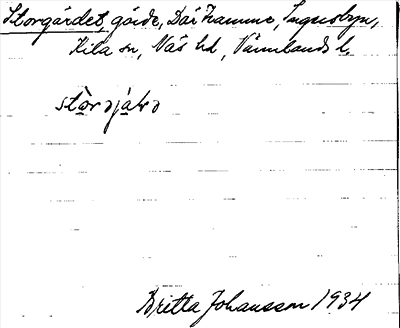 Storgärdet, gärde, Där hemme, Ingersbyn,
Kila sn, Näs hd, Värmlands l.
stòrəjạ̈ḷə
Britta Johansson 1934